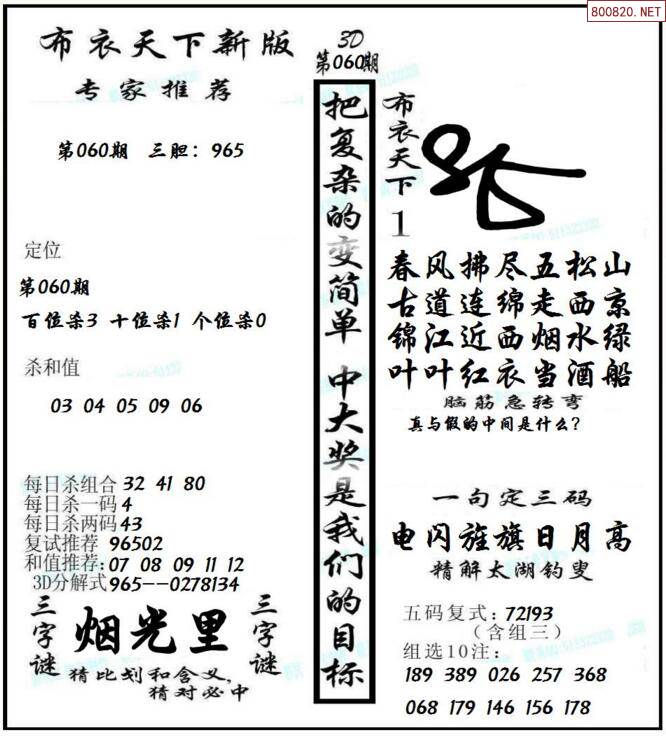 800820.NET
布衣天下新版
专家推荐
第060期 三胆：965
定位
第060期
百位杀3 十位杀1 个位杀0
杀和值
03 04 05 09 06
每日杀组合 32 41 80
每日杀一码 4
每日杀两码 43
复试推荐 96502
和值推荐：07 08 09 11 12
3D分解式 965--0278134
三字谜
烟光里
三字谜
猜比划和含义，
猜对必中
3D
第060期
把复杂的变简单 中大奖是我们的目标
布衣天下1
春风拂尽五松山
古道连绵走西京
锦江近西烟水绿
叶叶红衣当酒船
脑筋急转弯
真与假的中间是什么？
一句定三码
电闪旌旗日月高
精解太湖钓叟
五码复式：72193
（含组三）
组选10注：
189 389 026 257 368
068 179 146 156 178